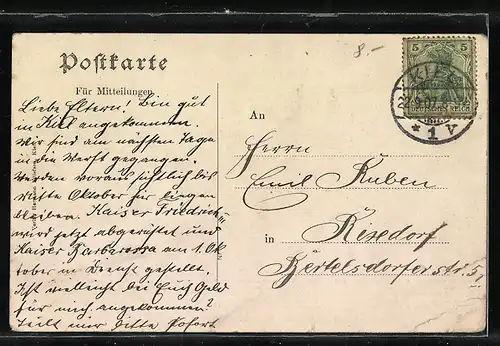 8.-
Postkarte
Für Mitteilungen
Liebe Eltern! Bin gut
in Kiel angekommen.
Wir sind am nächsten Tage
in die Werft gegangen.
Werden voraussichtlich bis
Mitte Oktober hier liegen
bleiben. Kaiser Friedrich III
wird jetzt abgerüstet und
Kaiser Barbarossa am 1. Ok
tober in Dienst gestellt.
Ist vielleicht die Euch Geld
für mich angekommen?
Teilt mir bitte sofort
An
Herrn
Emil Kuben
in Rexdorf
Hertelsdorfer str. 5
5 5
DEUTSCHES REICH
KIEL
22.9.07.
* 1 v